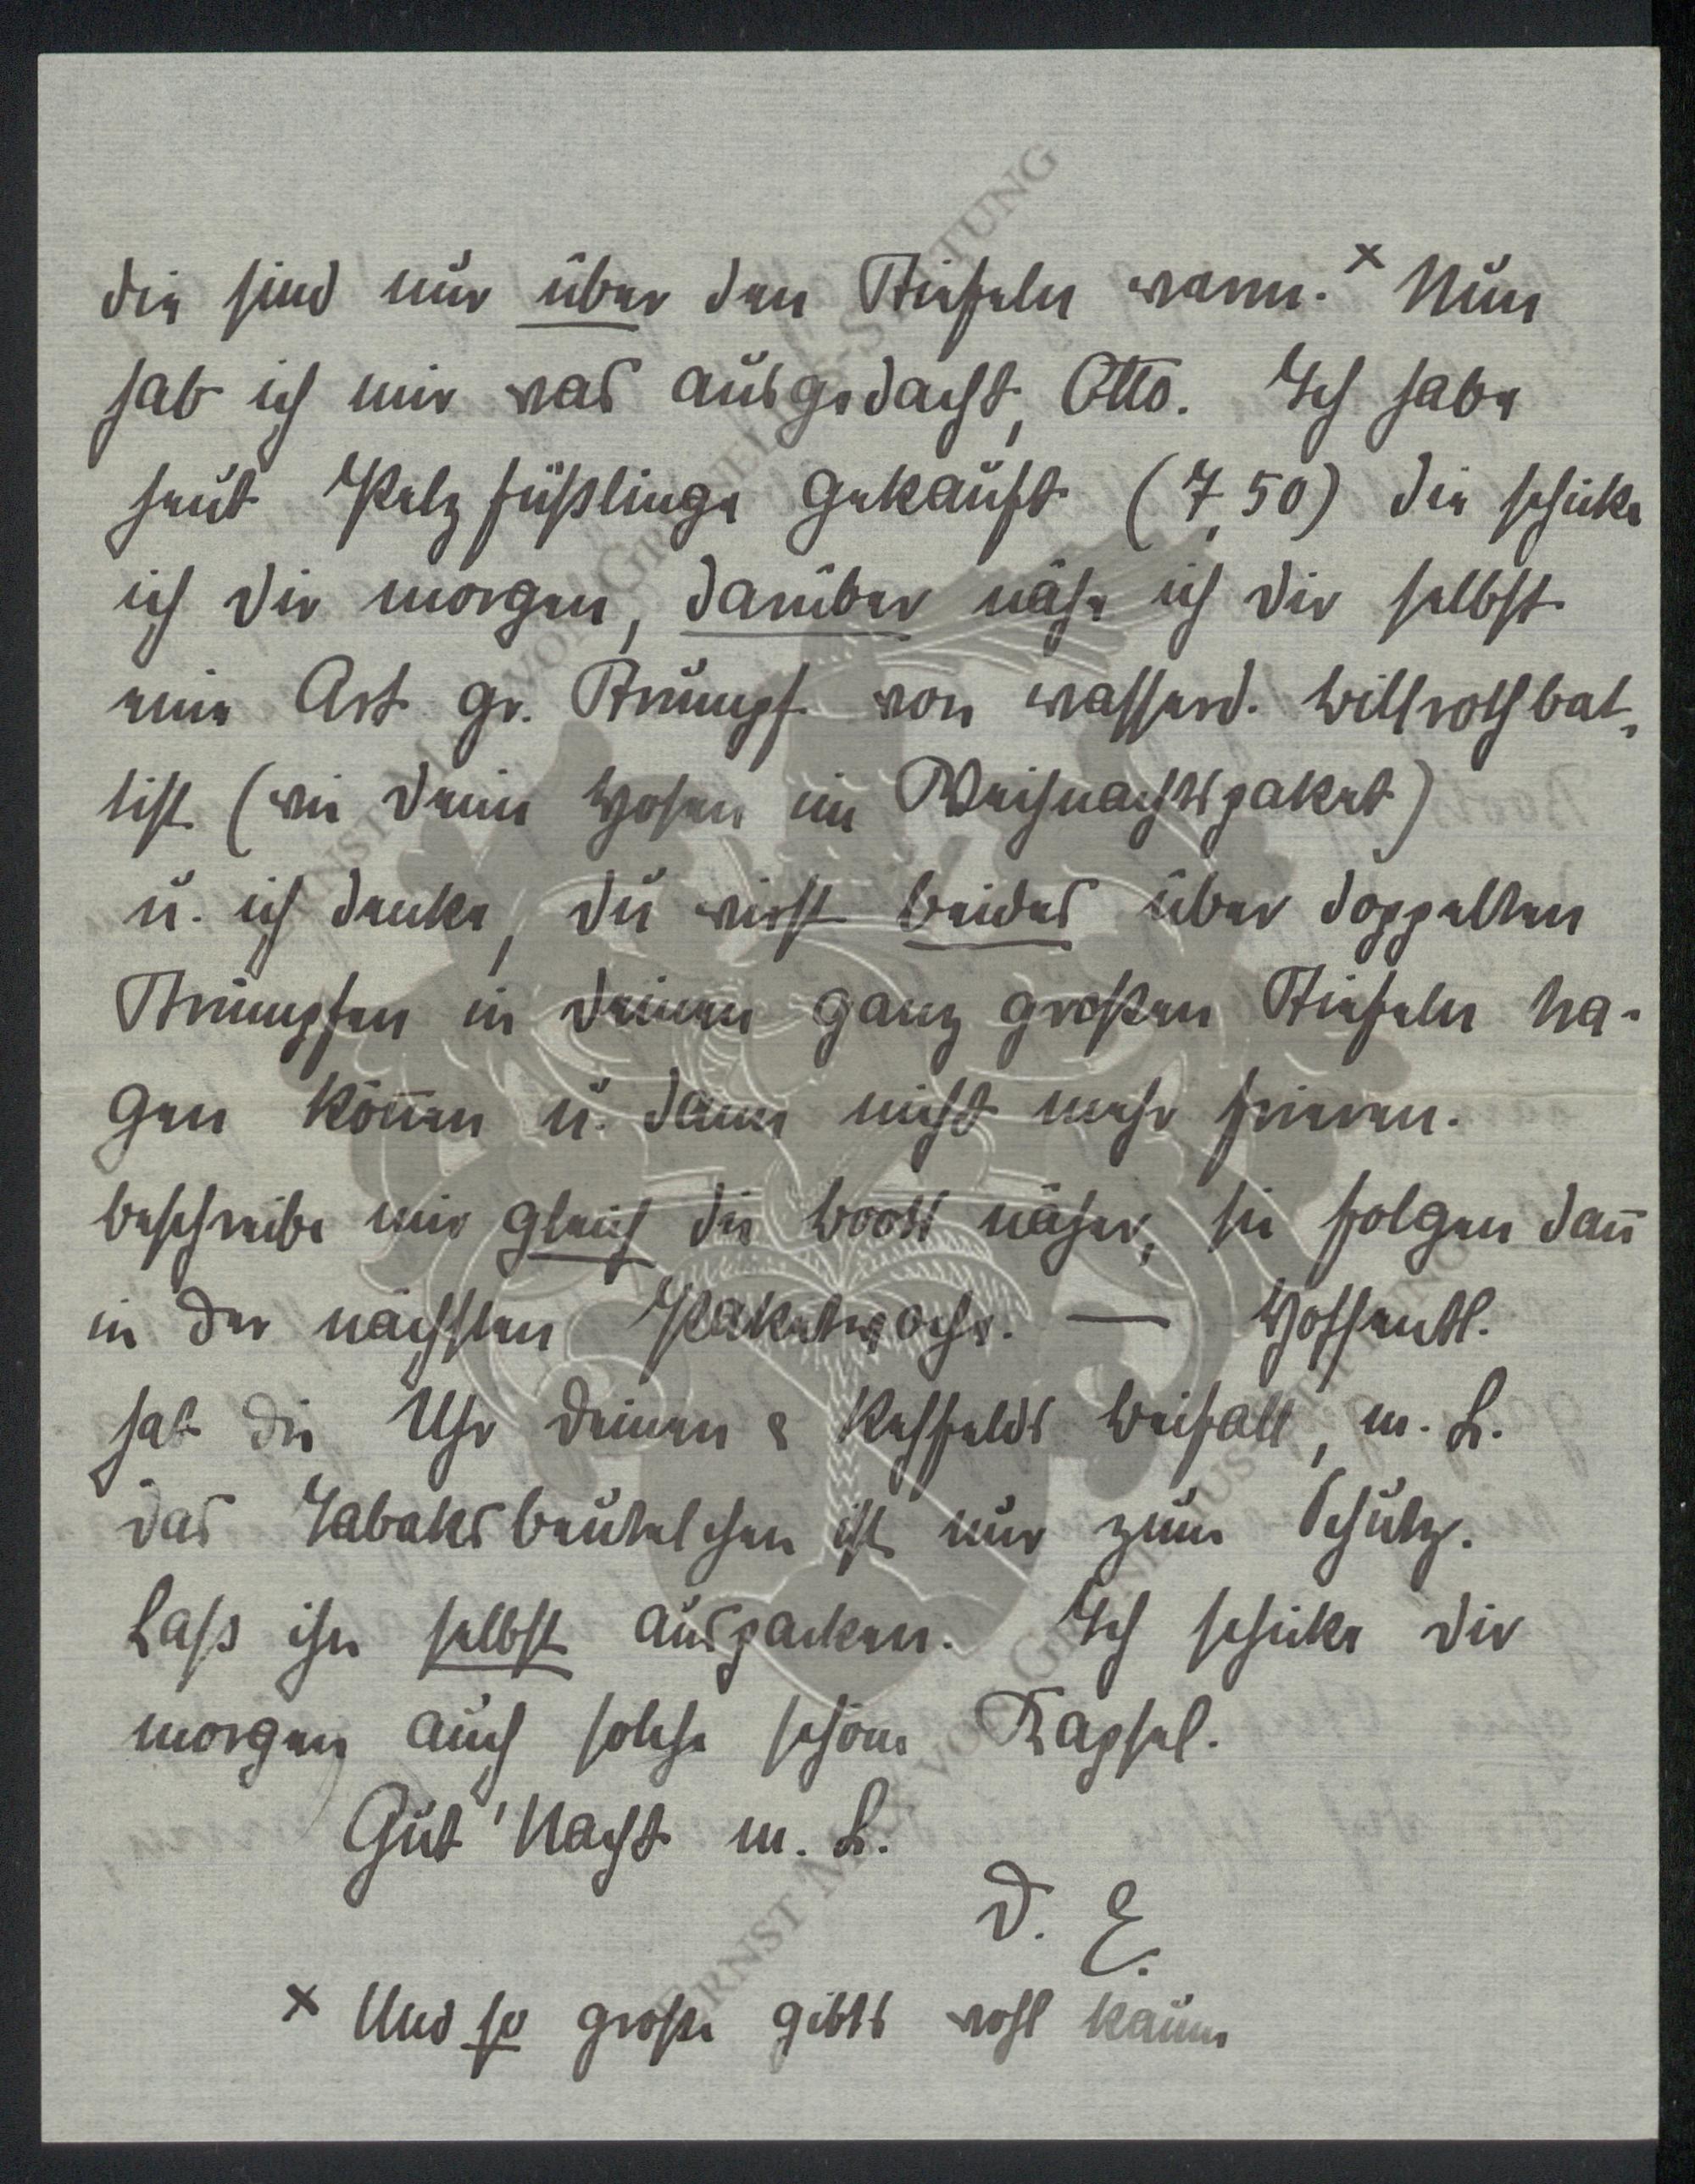 die sind nur über den Stiefeln warm.x Nun
hab ich mir was ausgedacht, Otto. Ich habe
heut Pelzfüßlinge gekauft (7,50) die schicke
ich dir morgen, darüber nähe ich dir selbst
eine Art gr. Strumpf von wasserd. Billrothbat-
tist (wie dein Hosen im Weihnachtspaket)
u. ich denke, du wirst beides über doppelten
Strümpfen in deinen ganz großen Stiefeln tra-
gen können u. dann nicht mehr frieren.
beschreibe mir gleich die boots näher, sie folgen dann
in der nächsten Paketwoche. — Hoffentl.
hat die Uhr deinen & Rehfelds Beifall, m. L.
das Tabaksbeutelchen ist nur zum Schutz.
Lass ihn selbst auspacken. Ich schicke dir
morgen auch solche schöne Kapsel.
Gut' Nacht m. L.
D. E.
x Und so große gibts wohl kaum
ERNST MAX VON GRUNELIUS-STIFTUNG
ERNST MAX VON GRUNELIUS-STIFTUNG